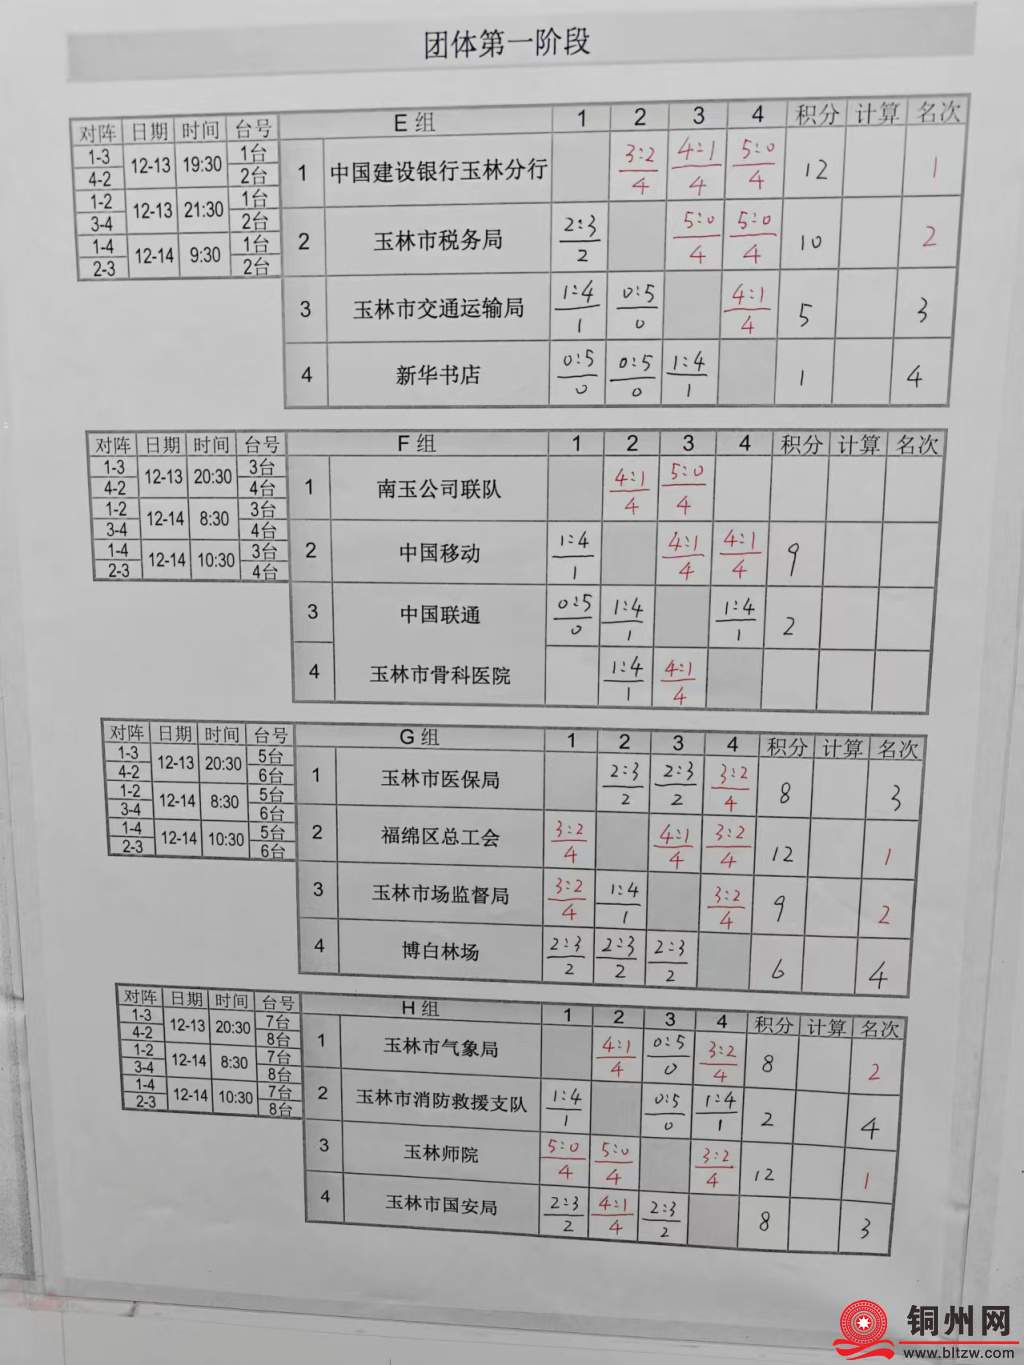 团体第一阶段
对阵 日期 时间 台号 E 组 1 2 3 4 积分 计算 名次
1-3 12-13 19:30 1台
4-2 2台
1 中国建设银行玉林分行 3:2/4 4:1/4 5:0/4 12 1
1-2 12-13 21:30 1台
3-4 2台
2 玉林市税务局 2:3/2 5:0/4 5:0/4 10 2
1-4 12-14 9:30 1台
2-3 2台
3 玉林市交通运输局 1:4/1 0:5/0 4:1/4 5 3
4 新华书店 0:5/0 0:5/0 1:4/1 1 4
对阵 日期 时间 台号 F 组 1 2 3 4 积分 计算 名次
1-3 12-13 20:30 3台
4-2 4台
1 南玉公司联队 4:1/4 5:0/4
1-2 12-14 8:30 3台
3-4 4台
2 中国移动 1:4/1 4:1/4 4:1/4 9
1-4 12-14 10:30 3台
2-3 4台
3 中国联通 0:5/0 1:4/1 1:4/1 2
4 玉林市骨科医院 1:4/1 4:1/4
对阵 日期 时间 台号 G 组 1 2 3 4 积分 计算 名次
1-3 12-13 20:30 5台
4-2 6台
1 玉林市医保局 2:3/2 2:3/2 3:2/4 8 3
1-2 12-14 8:30 5台
3-4 6台
2 福绵区总工会 3:2/4 4:1/4 3:2/4 12 1
1-4 12-14 10:30 5台
2-3 6台
3 玉林市场监督局 3:2/4 1:4/1 3:2/4 9 2
4 博白林场 2:3/2 2:3/2 2:3/2 6 4
对阵 日期 时间 台号 H 组 1 2 3 4 积分 计算 名次
1-3 12-13 20:30 7台
4-2 8台
1 玉林市气象局 4:1/4 0:5/0 3:2/4 8 2
1-2 12-14 8:30 7台
3-4 8台
2 玉林市消防救援支队 1:4/1 0:5/0 1:4/1 2 4
1-4 12-14 10:30 7台
2-3 8台
3 玉林师院 5:0/4 5:0/4 3:2/4 12 1
4 玉林市国安局 2:3/2 4:1/4 2:3/2 8 3
铜州网
www.bltzw.com